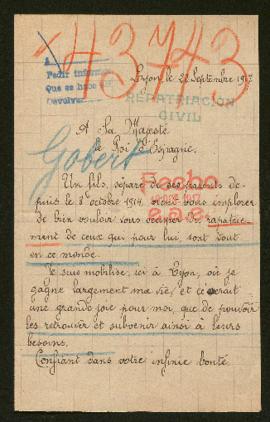 43743
A
Pedir informe
Que se hace
Devolver
Lyon le 22 Septembre 1917
REPATRIACIÓN
CIVIL
A Sa Majesté
le Roi d'Espagne.
Gobert
Hecho
Un fils, séparé de ses parents de-
puis le 8 octobre 1914, vient vous implorer
de bien vouloir vous occuper du rapatrie-
ment de ceux qui pour lui, sont tout
en ce monde.
Je suis mobilisé, ici à Lyon, où je
gagne largement ma vie, et ce serait
une grande joie pour moi, que de pouvoir
les retrouver et subvenir ainsi à leurs
besoins.
Confiant dans votre infinie bonté